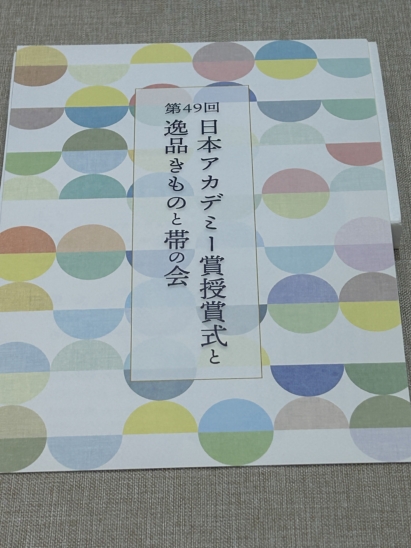 第49回
日本アカデミー賞授賞式と
逸品きものと帯の会